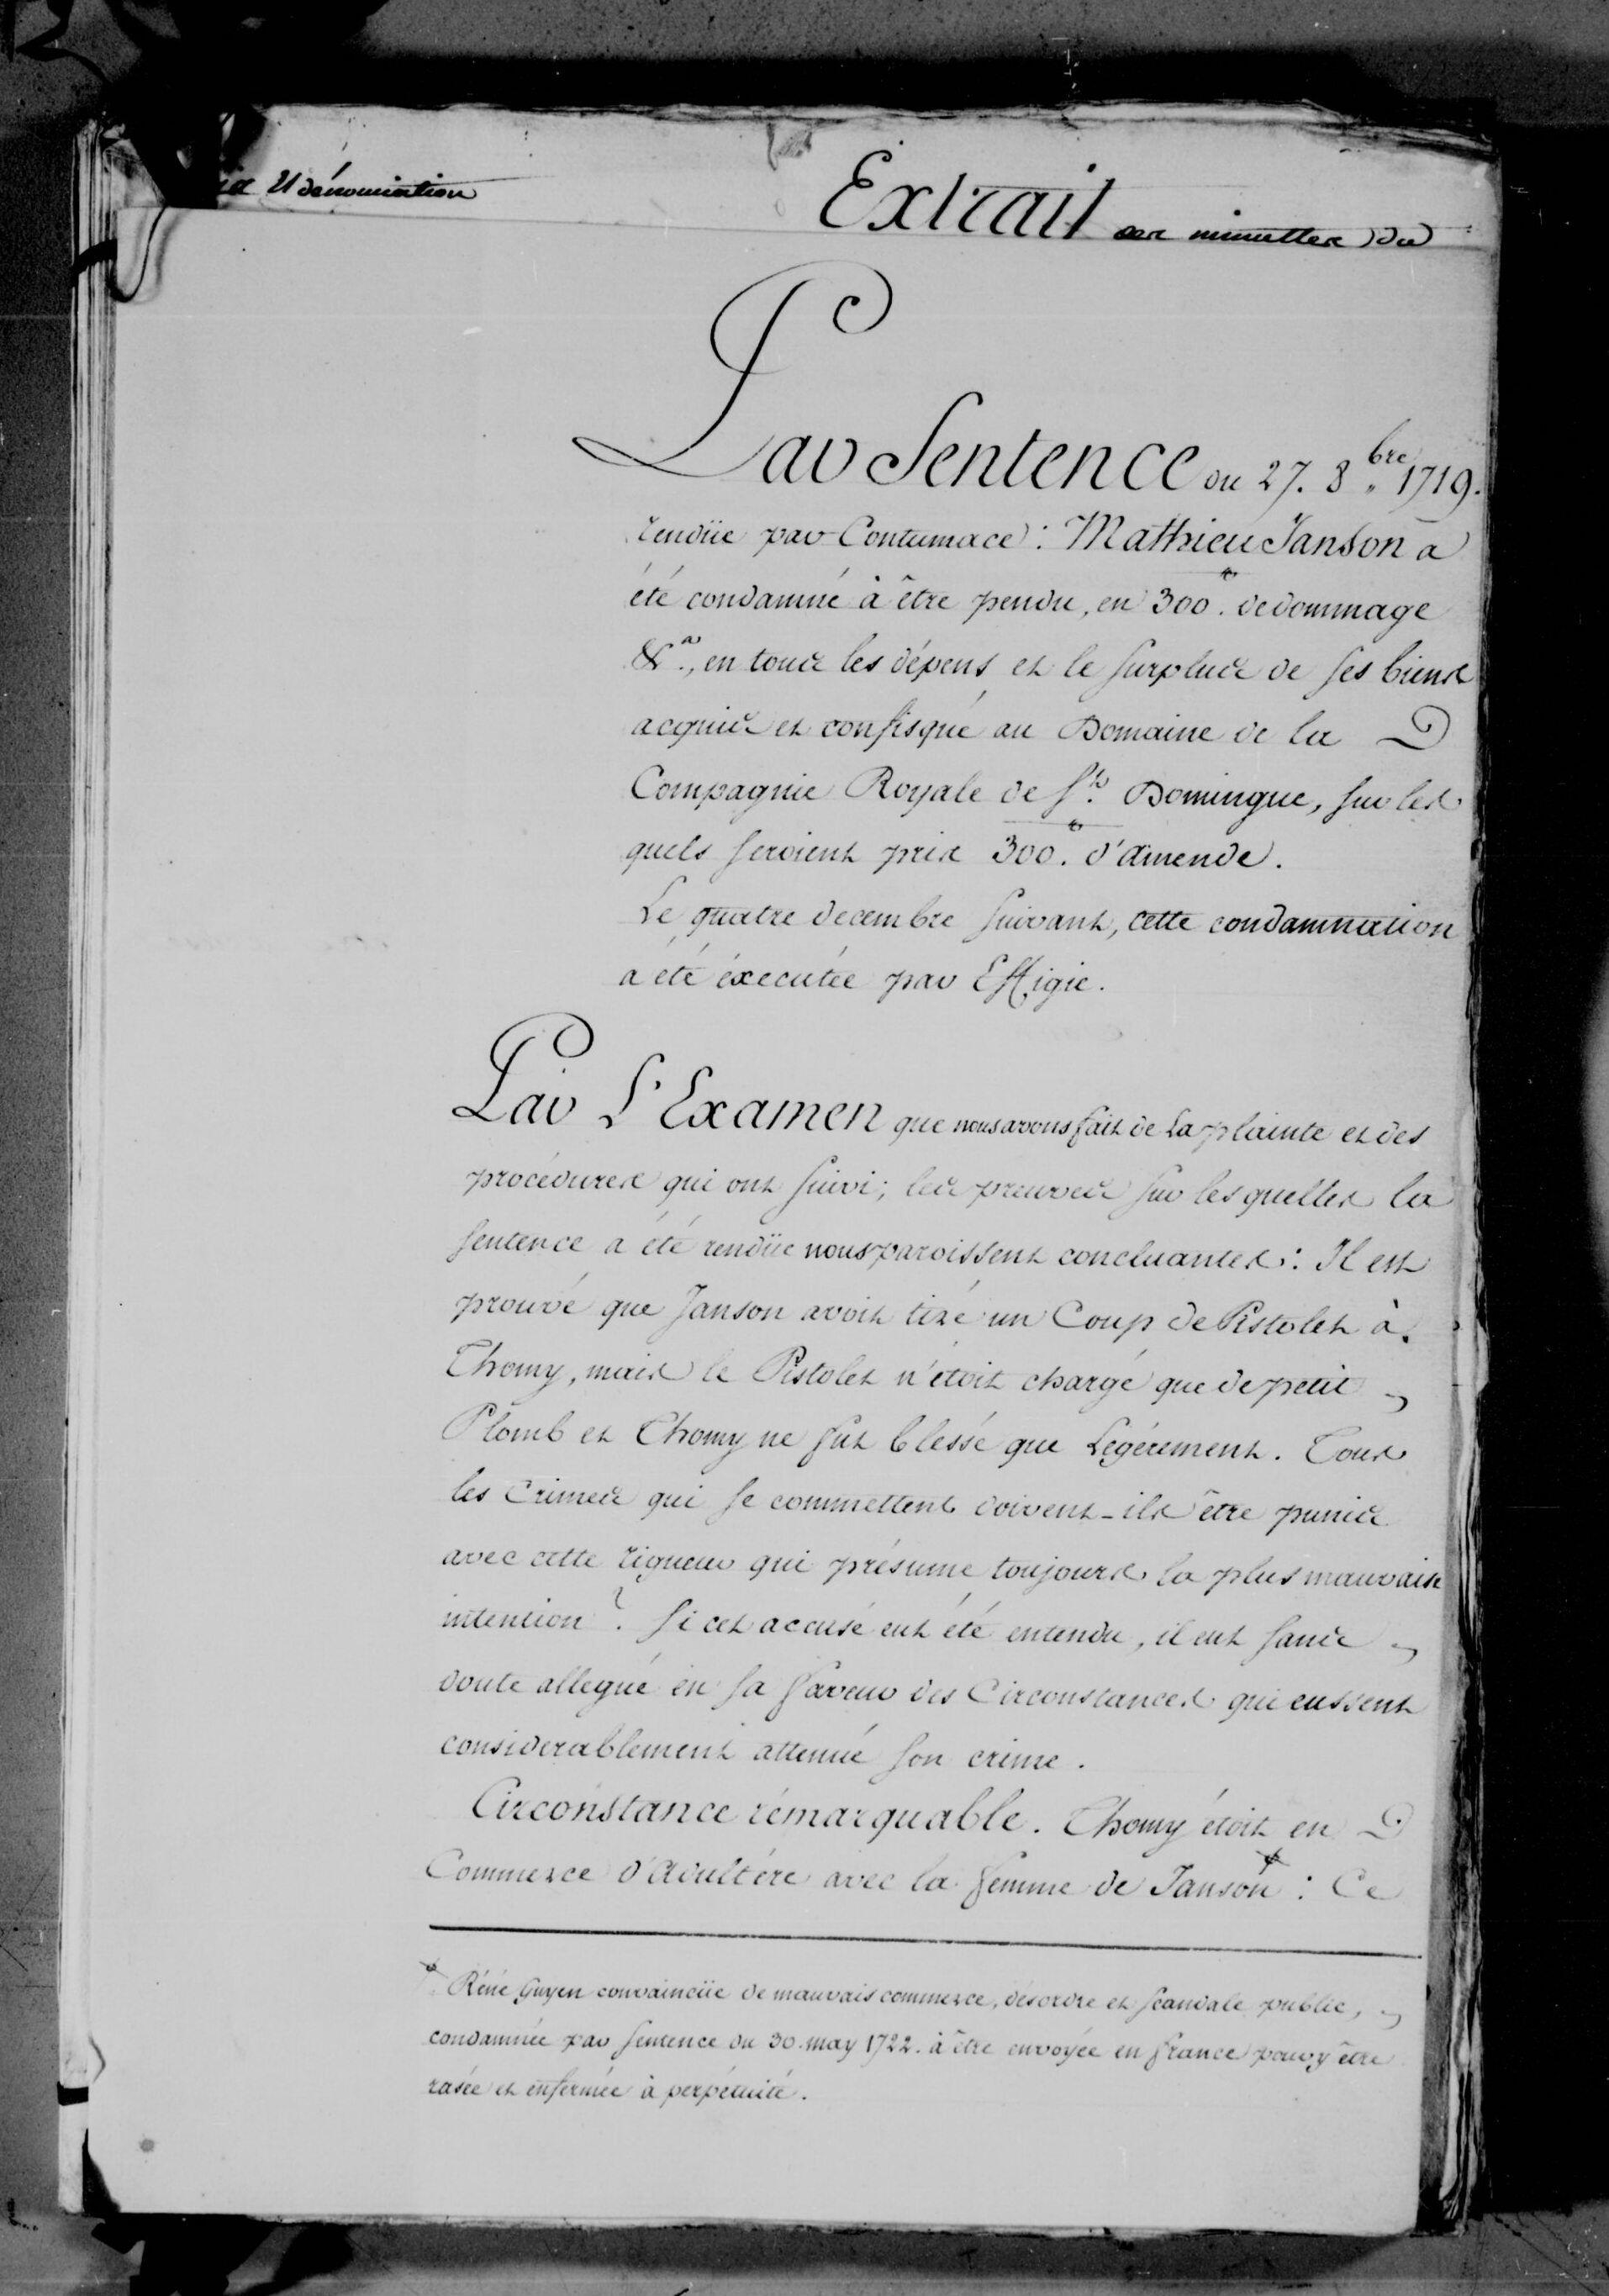 dénonciation
Extrait des minuttes du
Par Sentence du 27. 8.bre 1719.
rendüe par Contumace : Mathieu Janson a
été condamné à être pendu, en 300.₶ de dommage
&a., en tous les dépens et le surplus de ses biens
acquis et confisqué au Domaine de la
Compagnie Royale de St. Domingue, sur les
quels seroient pris 300.₶ d'amende.
Le quatre decembre suivant, cette condamnation
a été éxecutée par Effigie.
Par L'Examen que nous avons fait de La plainte et des
procédures qui ont suivi ; les preuves sur les quelles la
sentence a été rendüe nous paroissent concluantes : Il est
prouvé que Janson avoit tiré un Coup de Pistolet à
Thomy, mais le Pistolet n'étoit chargé que de petit
Plomb et Thomy ne fut blessé que Légérement. Tous
les Crimes qui se commettent doivent-ils être punis
avec cette rigueur qui présume toujours la plus mauvaise
intention ? Si cet accusé eut été entendu, il eut sans
doute allegué en sa faveur des Circonstances qui eussent
considerablement attenué son crime.
Circonstance rémarquable. Thomy étoit en
Commerce d'Adultére avec la femme de Janson : Ce
Réné Guyen convaincüe de mauvais commerce, désordre et scandale public,
condamnée par sentence du 30. may 1722. à être envoyée en france pour y être
rasée et enfermée à perpétuité.